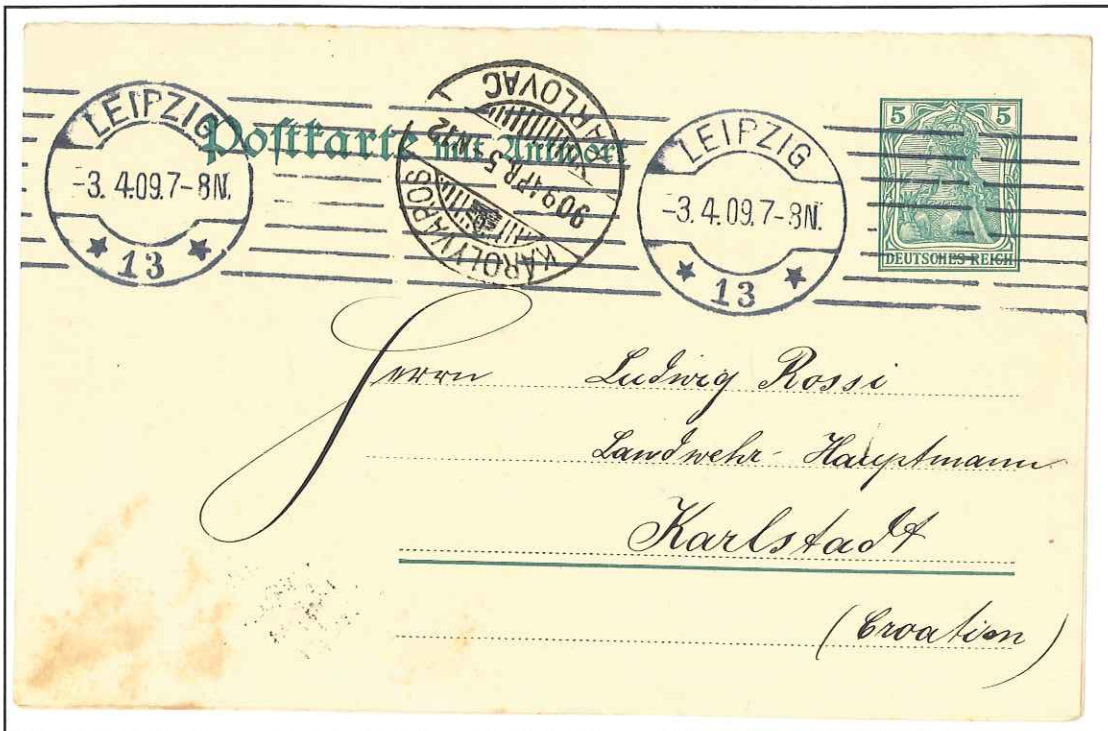 LEIPZIG
-3.4.09.7-8N.
13
Postkarte mit Antwort
KÁROLYVÁROS
909 APR 5 N12
KARLOVAC
LEIPZIG
-3.4.09.7-8N.
13
5 5
DEUTSCHES REICH
Herrn Ludwig Rossi
Landwehr-Hauptmann
Karlstadt
(Croatien)